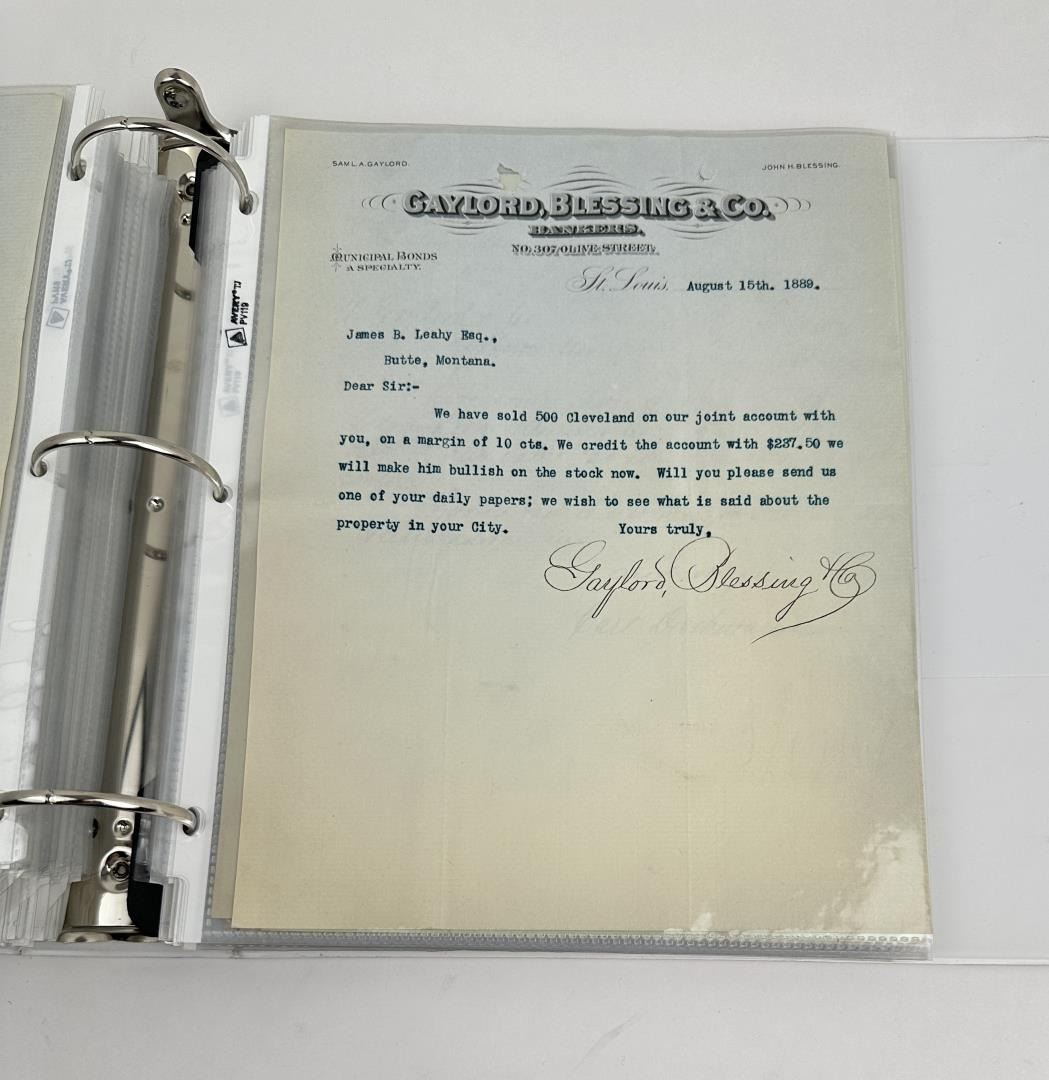 SAML. A. GAYLORD.
JOHN H. BLESSING.
GAYLORD, BLESSING & CO.
BANKERS,
NO. 307 OLIVE STREET.
MUNICIPAL BONDS
A SPECIALTY.
St. Louis, August 15th. 1889.
James B. Leahy Esq.,
Butte, Montana.
Dear Sir:-
We have sold 500 Cleveland on our joint account with
you, on a margin of 10 cts. We credit the account with $237.50 we
will make him bullish on the stock now. Will you please send us
one of your daily papers; we wish to see what is said about the
property in your City. Yours truly,
Gaylord, Blessing & Co
AVERY
PV119